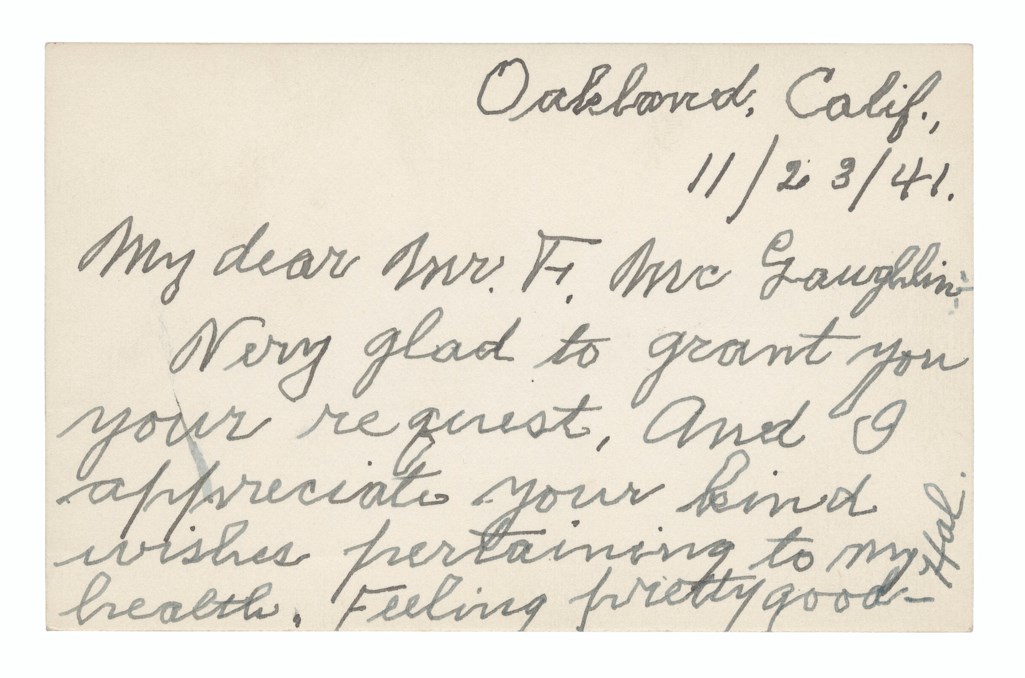 Oakland, Calif.,
11/23/41.
My dear Mr. F. Mc Laughlin:
Very glad to grant you
your request, And I
appreciate your kind
wishes pertaining to my
health. Feeling pretty good–
Hal.